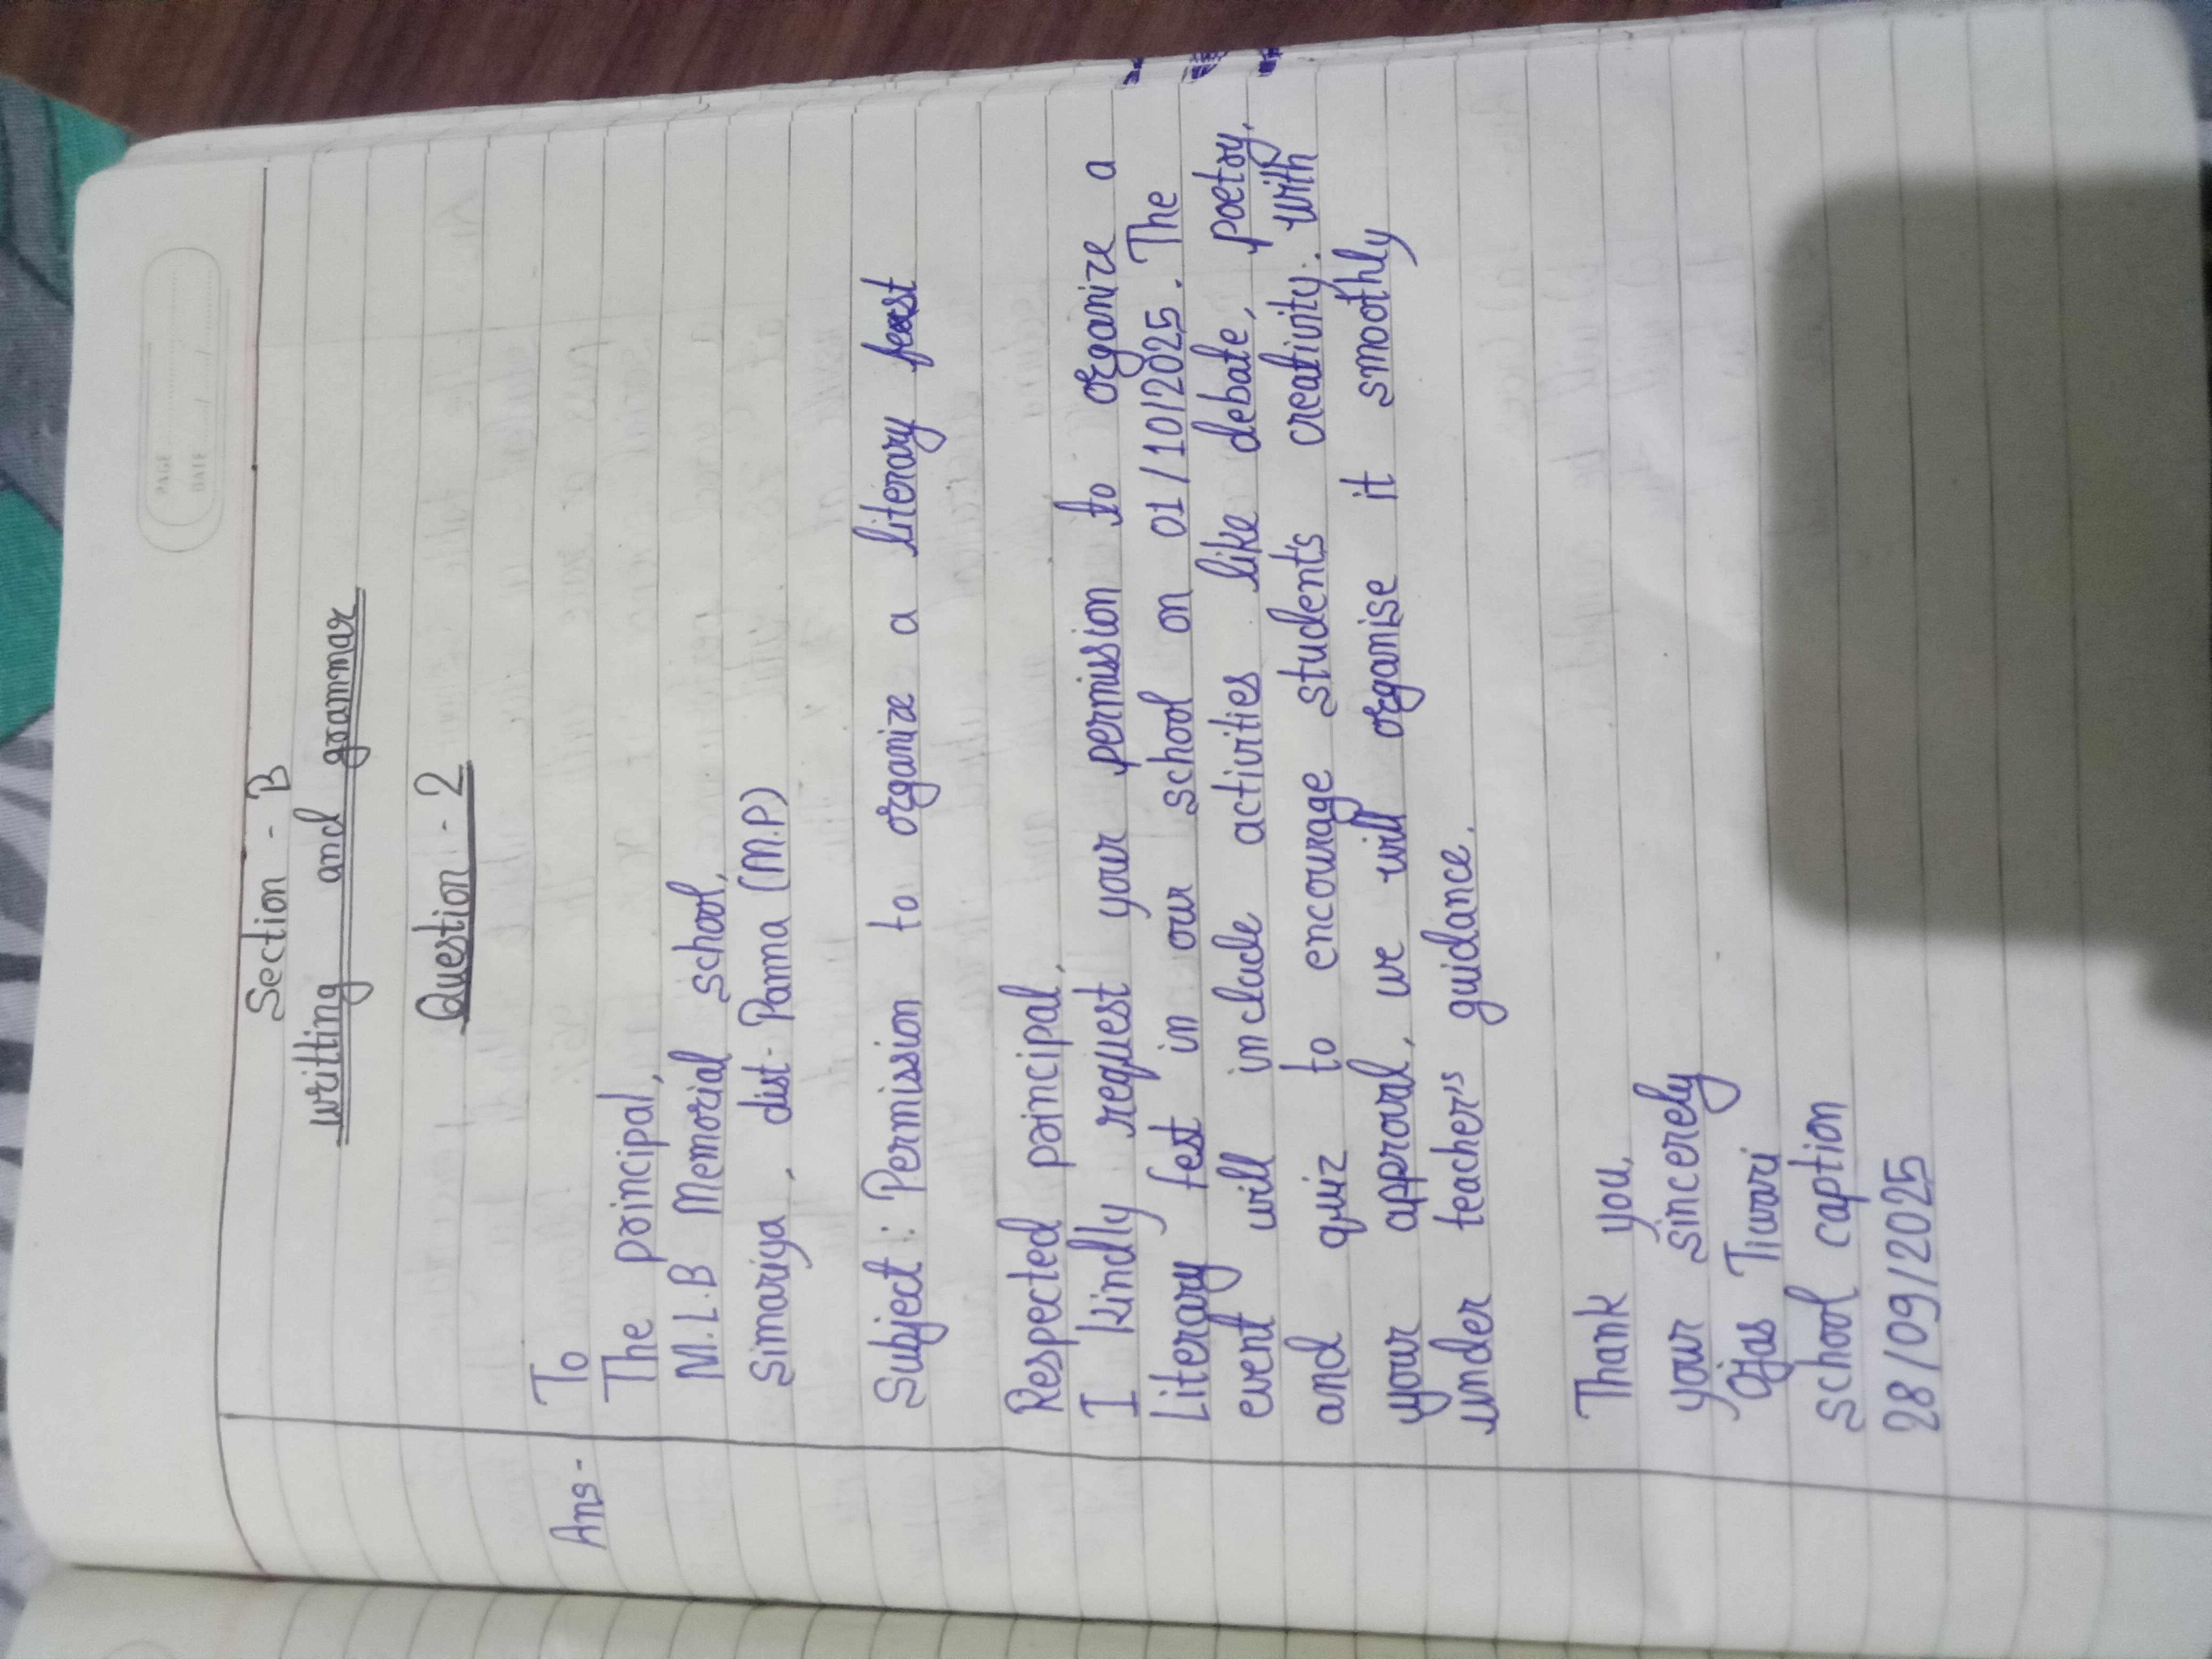 PAGE
DATE
Section - B
writting and grammar
Question - 2
Ans- To
The principal,
M.L.B Memorial school,
Simariya, dist- Panna (M.P)
Subject: Permission to organize a literary fest
Respected principal,
I kindly request your permission to organize a
Literary fest in our school on 01/10/2025. The
event will include activities like debate, poetry,
and quiz to encourage student's creativity. With
your approval, we will organise it smoothly
under teacher's guidance.
Thank you,
your sincerely
Ojas Tiwari
school caption
28/09/2025